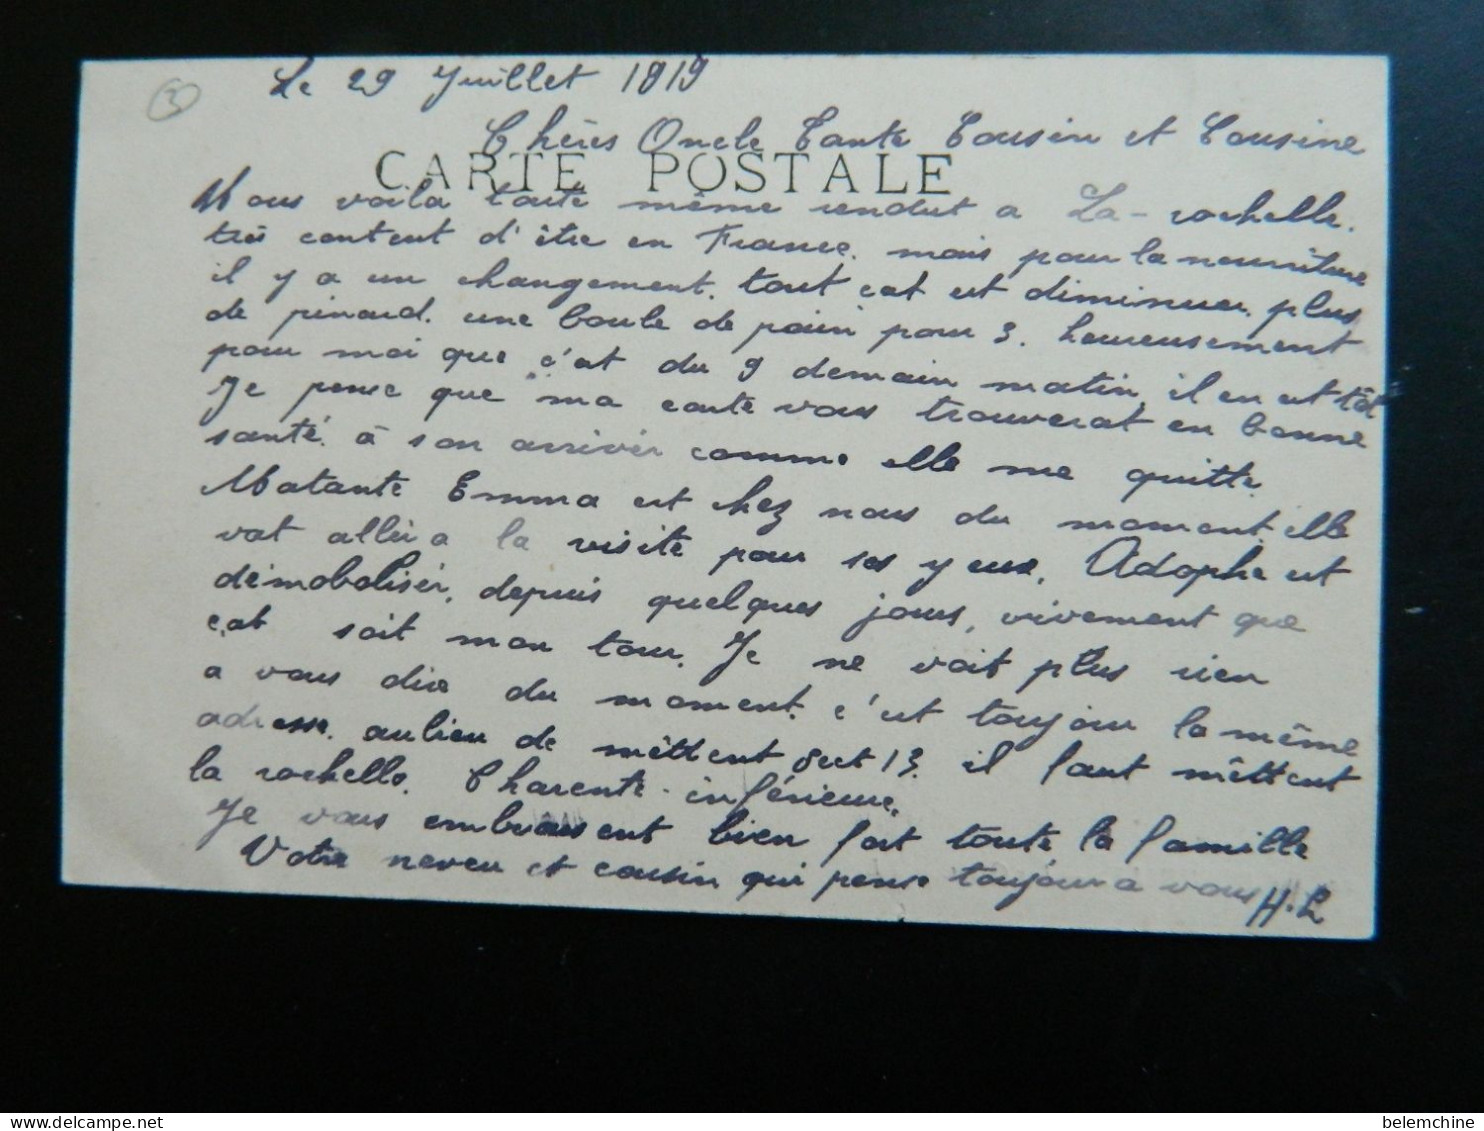 3
Le 29 Juillet 1919
Chères Oncle Tante Cousin et Cousine
CARTE POSTALE
Nous voila toute même rendut a La-rochelle.
très content d'être en France. mais pour la nourriture
il y a un changement. tout cat est diminuer. plus
de pinard. une boule de pain pour 3. heureusement
pour moi que c'at du 9 demain matin, il en est tôt
Je pense que ma carte vous trouverat en bonne
santé. à son arrivér comme elle me quitte.
Matante Emma est chez nous du moment. elle
vat allér a la visite pour ses yeux. Adophe est
démobolisér. depuis quelques jours, vivement que
cat soit mon tour. Je ne voit plus rien
a vous dire du moment. c'est toujour la même
adresse. aulieu de mêttent Sect 13. il faut mêttent
la rochelle. Charente-inférieure.
Je vous embrassent bien fort toute la famille
Votre neveu et cousin qui pense toujour a vous H.L
belemchine